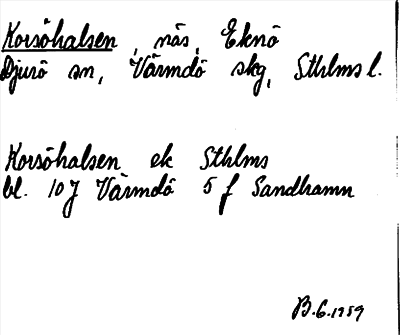 Korsöhalsen, näs, Eknö
Djurö sn, Värmdö skg, Sthlms l.
Korsöhalsen ek Sthlms
bl. 10 J Värmdö 5 f Sandhamn
B.6.1959